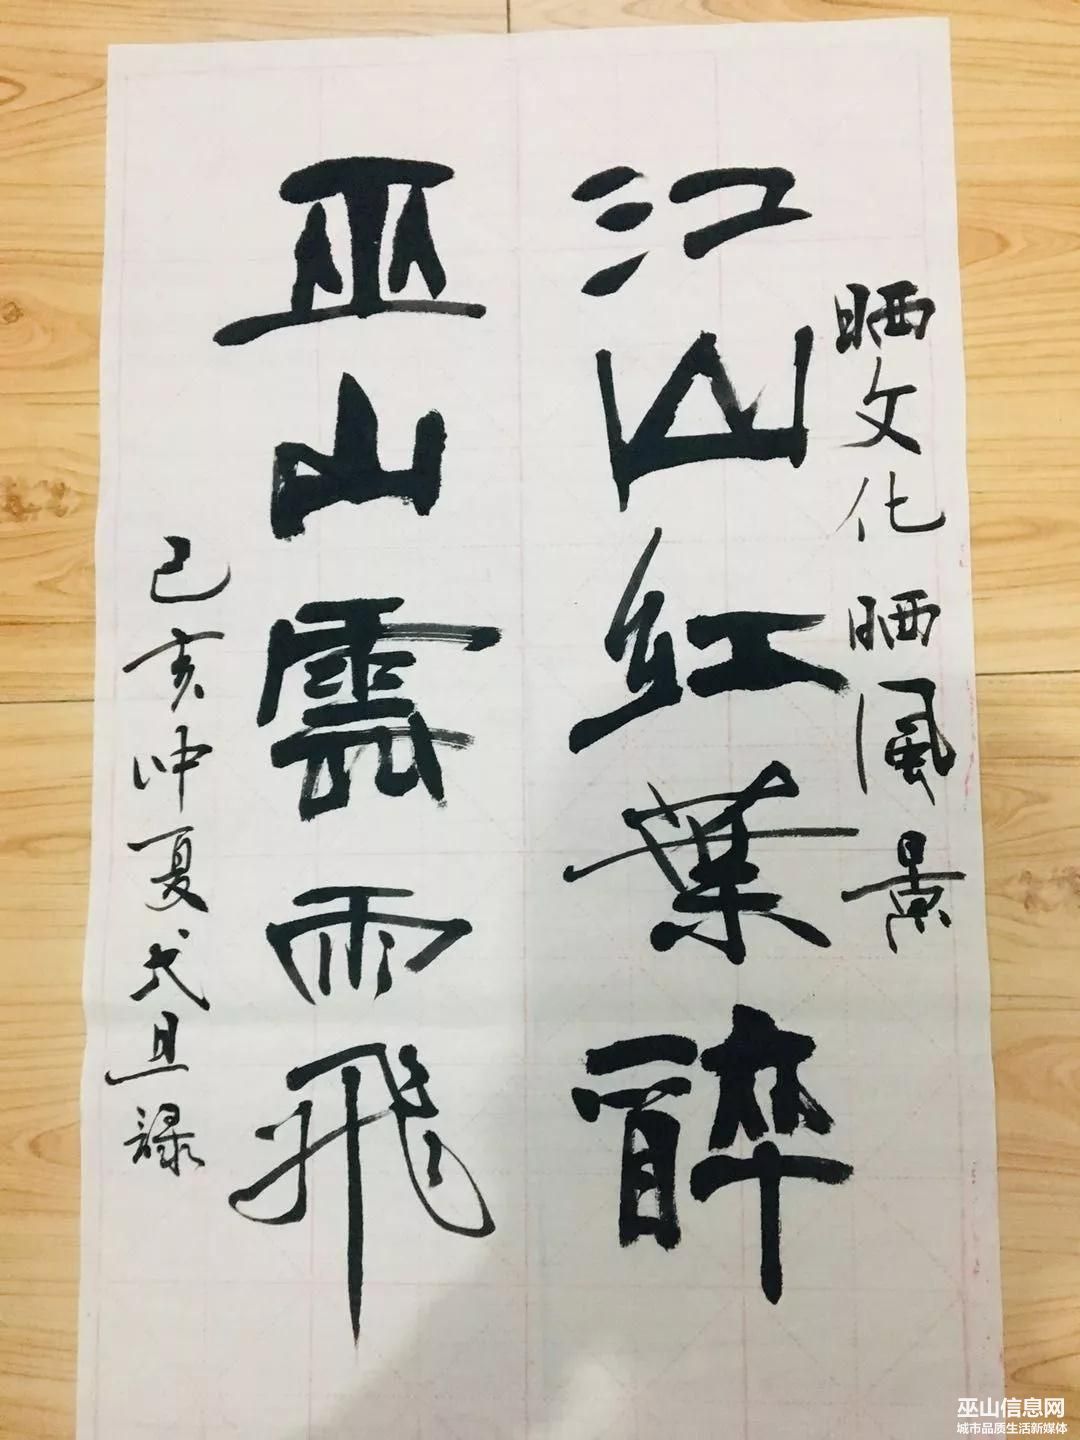 晒文化晒風景
江山红葉醉
巫山雲雨飛
己亥仲夏弌旦録
巫山信息网
城市品质生活新媒体